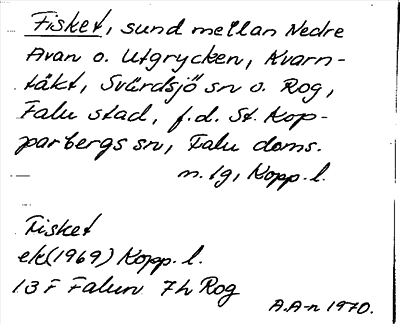 Fisket, sund mellan Nedre
Avan o. Utgrycken, Kvarn-
täkt, Svärdsjö sn o. Rog,
Falu stad, f.d. St. Kop-
parbergs sn, Falu doms.
n. tg, Kopp. l.
Fisket
ek(1969) Kopp. l.
13 F Falun 7h Rog
A.A-n 1970.